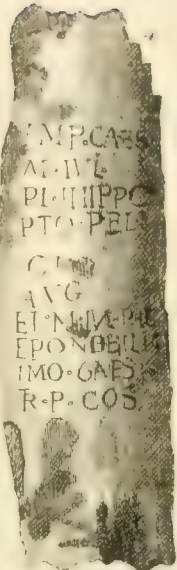 MP·CAES
IVL
PI·IIIIPPO
PTO·PEL
AVG
ET·M·IVL·PHI
EPONOBILI
IMO·CAES
R·P·COS